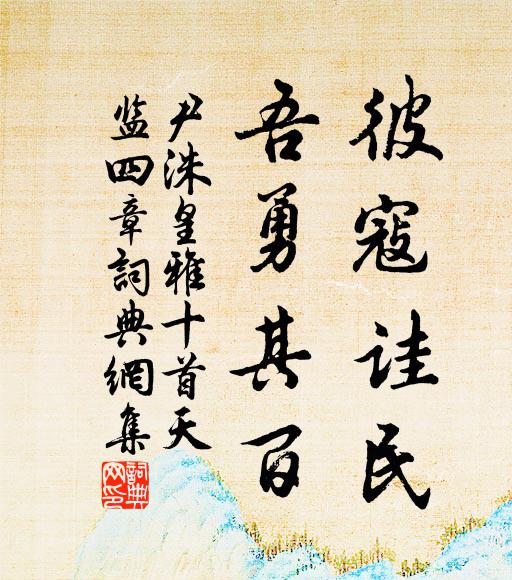 彼寇詿民
吾勇其百
尹洙皇雅十首天
监四章詞典網集
詞典
网印